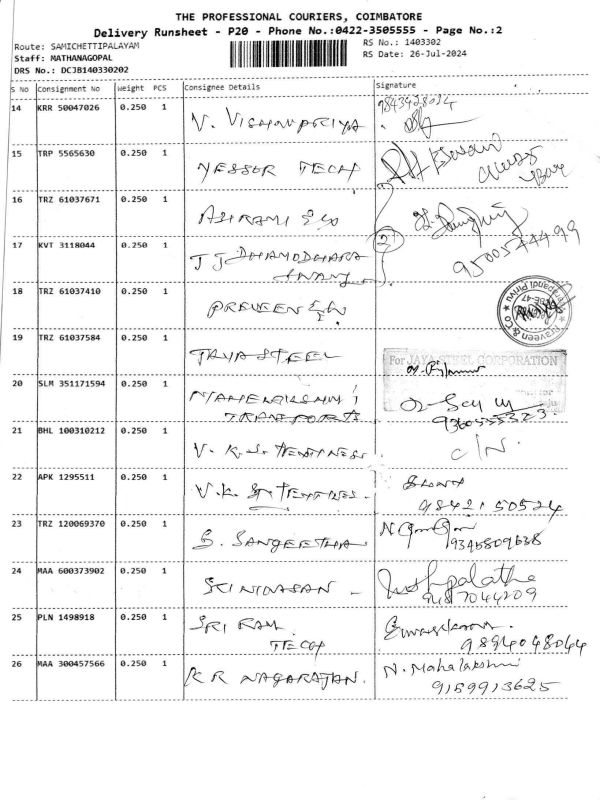 THE PROFESSIONAL COURIERS, COIMBATORE
Delivery Runsheet - P20 - Phone No.:0422-3505555 - Page No.:2
Route: SAMICHETTIPALAYAM
RS No.: 1403302
Staff: MATHANAGOPAL
RS Date: 26-Jul-2024
DRS No.: DCJB140330202
S No Consignment No Weight PCS Consignee Details Signature
14 KRR 50047026 0.250 1 V. VISHNUPRIYA 9843928024
15 TRP 5565630 0.250 1 YESSOR TECH
16 TRZ 61037671 0.250 1
9500574499
17 KVT 3118044 0.250 1 JJ DHAMODHARA
2
18 TRZ 61037410 0.250 1 PRAVEEN
Praveen & Co
19 TRZ 61037584 0.250 1 JAYA STEEL
For JAYA STEEL CORPORATION
20 SLM 351171594 0.250 1
TRANSPORTS
9360555323
21 BHL 100310212 0.250 1 V. K. S.
C/N.
22 APK 1295511 0.250 1 V.K.
9842150524
23 TRZ 120069370 0.250 1 S. SANGEETHA
9345809638
24 MAA 600373902 0.250 1 SRINIVASAN - Pushpalatha
9487044209
25 PLN 1498918 0.250 1 SRI RAM
TECH 9894048044
26 MAA 300457566 0.250 1 K R NAGARAJAN. N. Mahalakshmi
9159913625